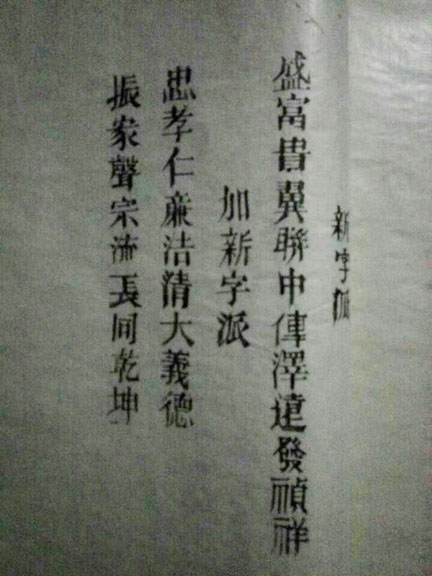 新字派
盛富貴冀聯中傳澤遠發禎祥
加新字派
忠孝仁廉洁清大義德
振家聲宗流長同乾坤